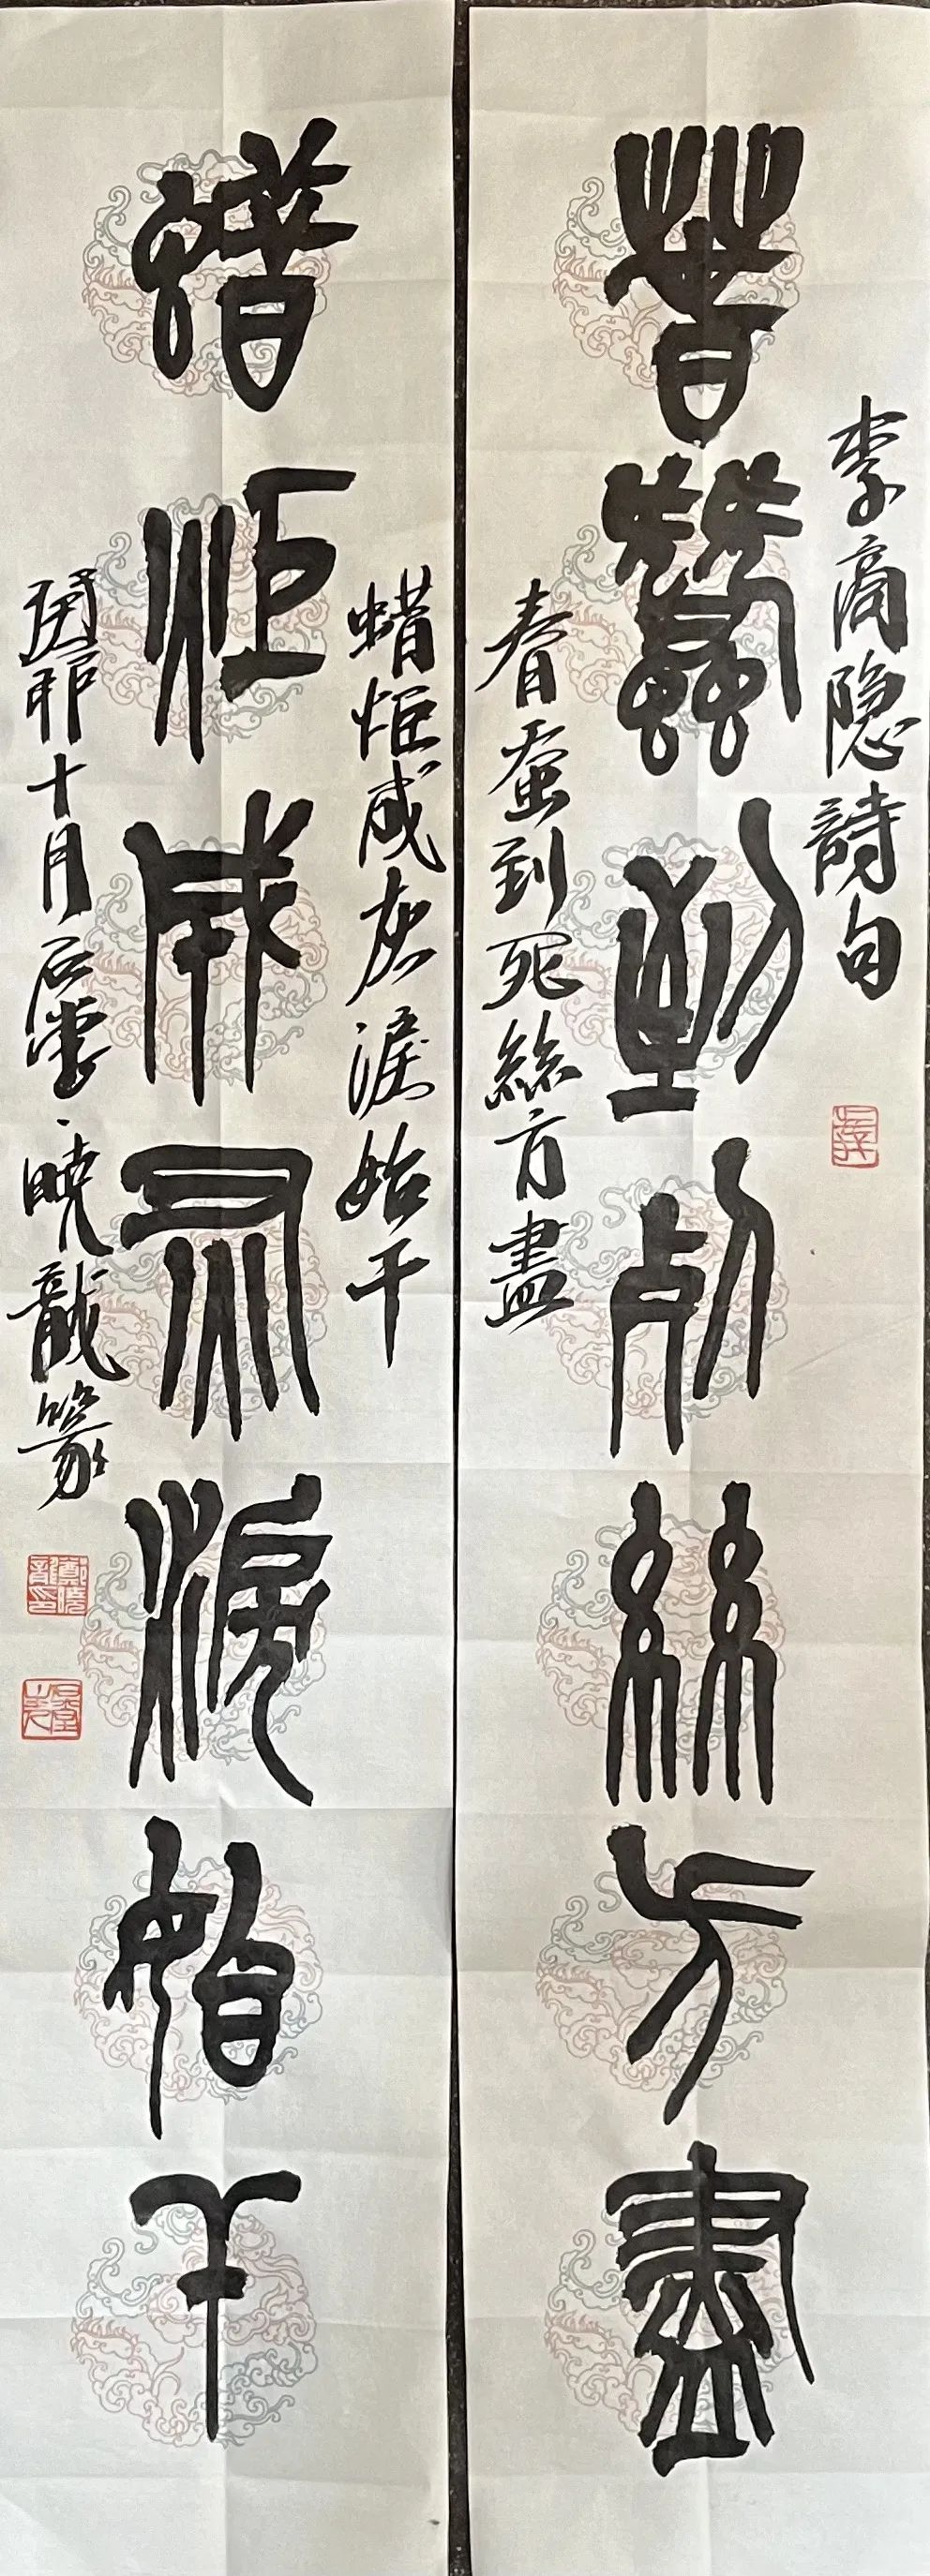 李商隐詩句
春蠶到死絲方盡
春蚕到死絲方盡
蜡炬成灰淚始干
蜡炬成灰淚始干
卯十月石堂曉龍篆
鄭曉龍印